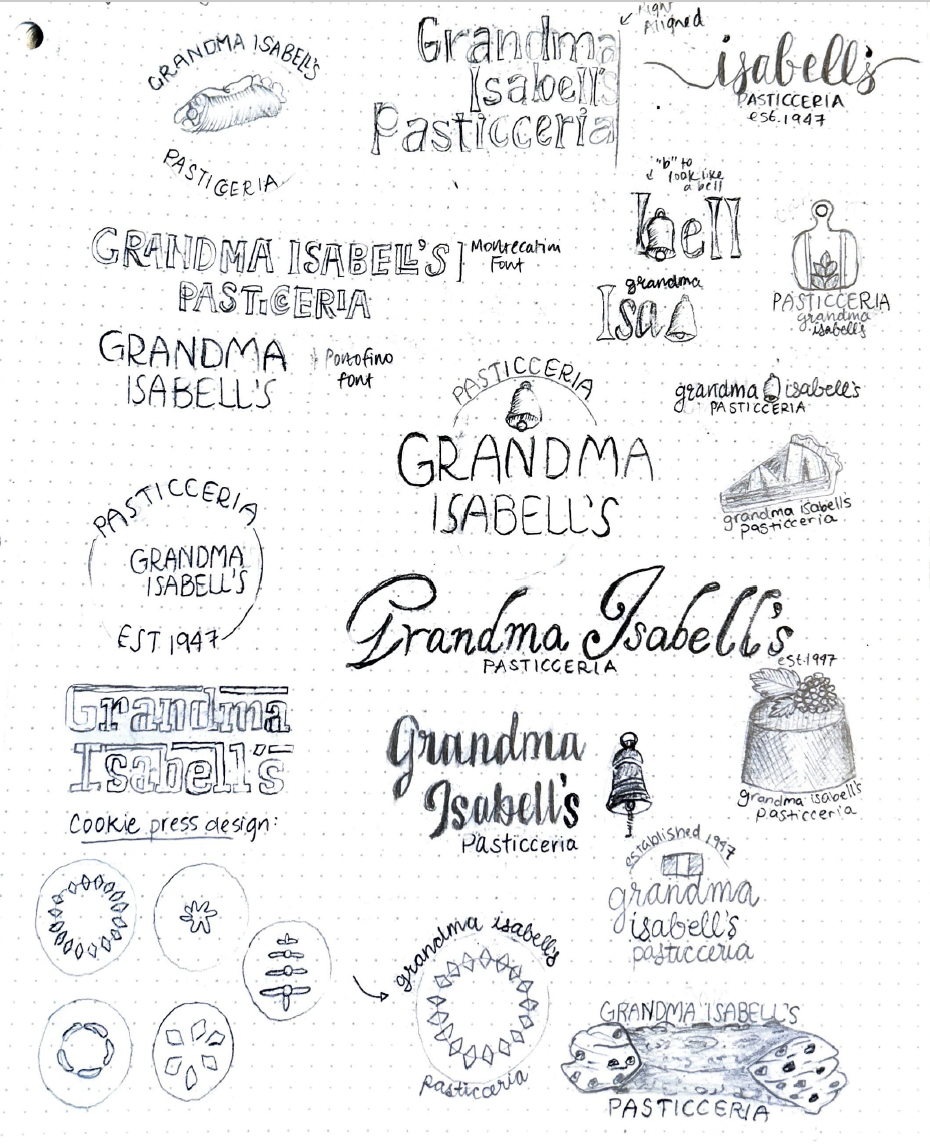 GRANDMA ISABELL'S
PASTICCERIA
Grandma
Isabell's
Pasticceria
Right
Aligned
isabell's
PASTICCERIA
est. 1947
"b" to
look like
a bell
bell
grandma
Isa
PASTICCERIA
grandma
isabell's
GRANDMA ISABELL'S
PASTICCERIA
Montecatini
Font
GRANDMA
ISABELL'S
Portofino
font
PASTICCERIA
GRANDMA
ISABELL'S
grandma isabell's
PASTICCERIA
grandma isabells
pasticceria
PASTICCERIA
GRANDMA
ISABELL'S
EST 1947
Grandma Isabell's
PASTICCERIA
est. 1947
Grandma
Isabell's
Grandma
Isabell's
Pasticceria
grandma isabell's
pasticceria
Cookie press design:
established 1947
grandma
isabell's
pasticceria
grandma isabell's
Pasticceria
GRANDMA ISABELL'S
PASTICCERIA